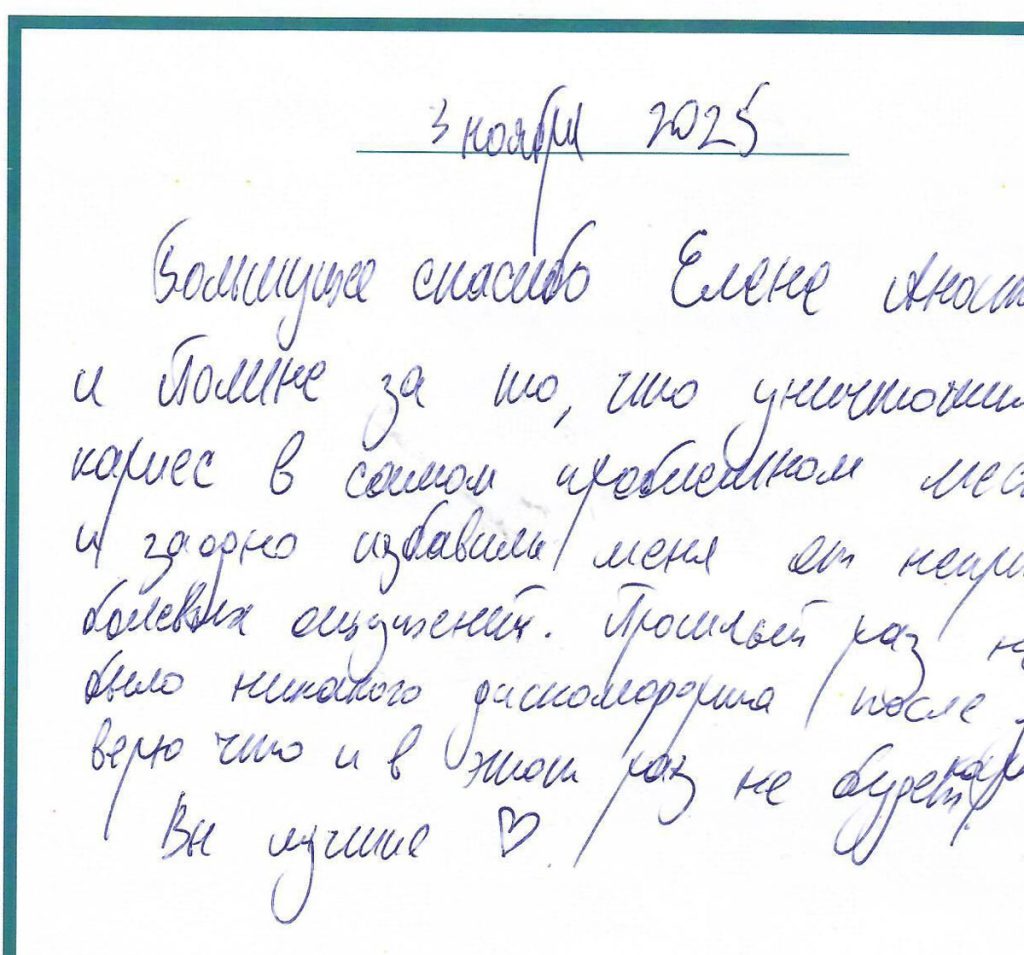 3 ноября 2025
Большущее спасибо Елене
и Полине за то, что
кариес в самом проблемном
и заодно избавили меня от
болевых ощущений. Прошлый раз
было никакого дискомфорта после
верю что и в этот раз не будет
Вы лучшие ♡.